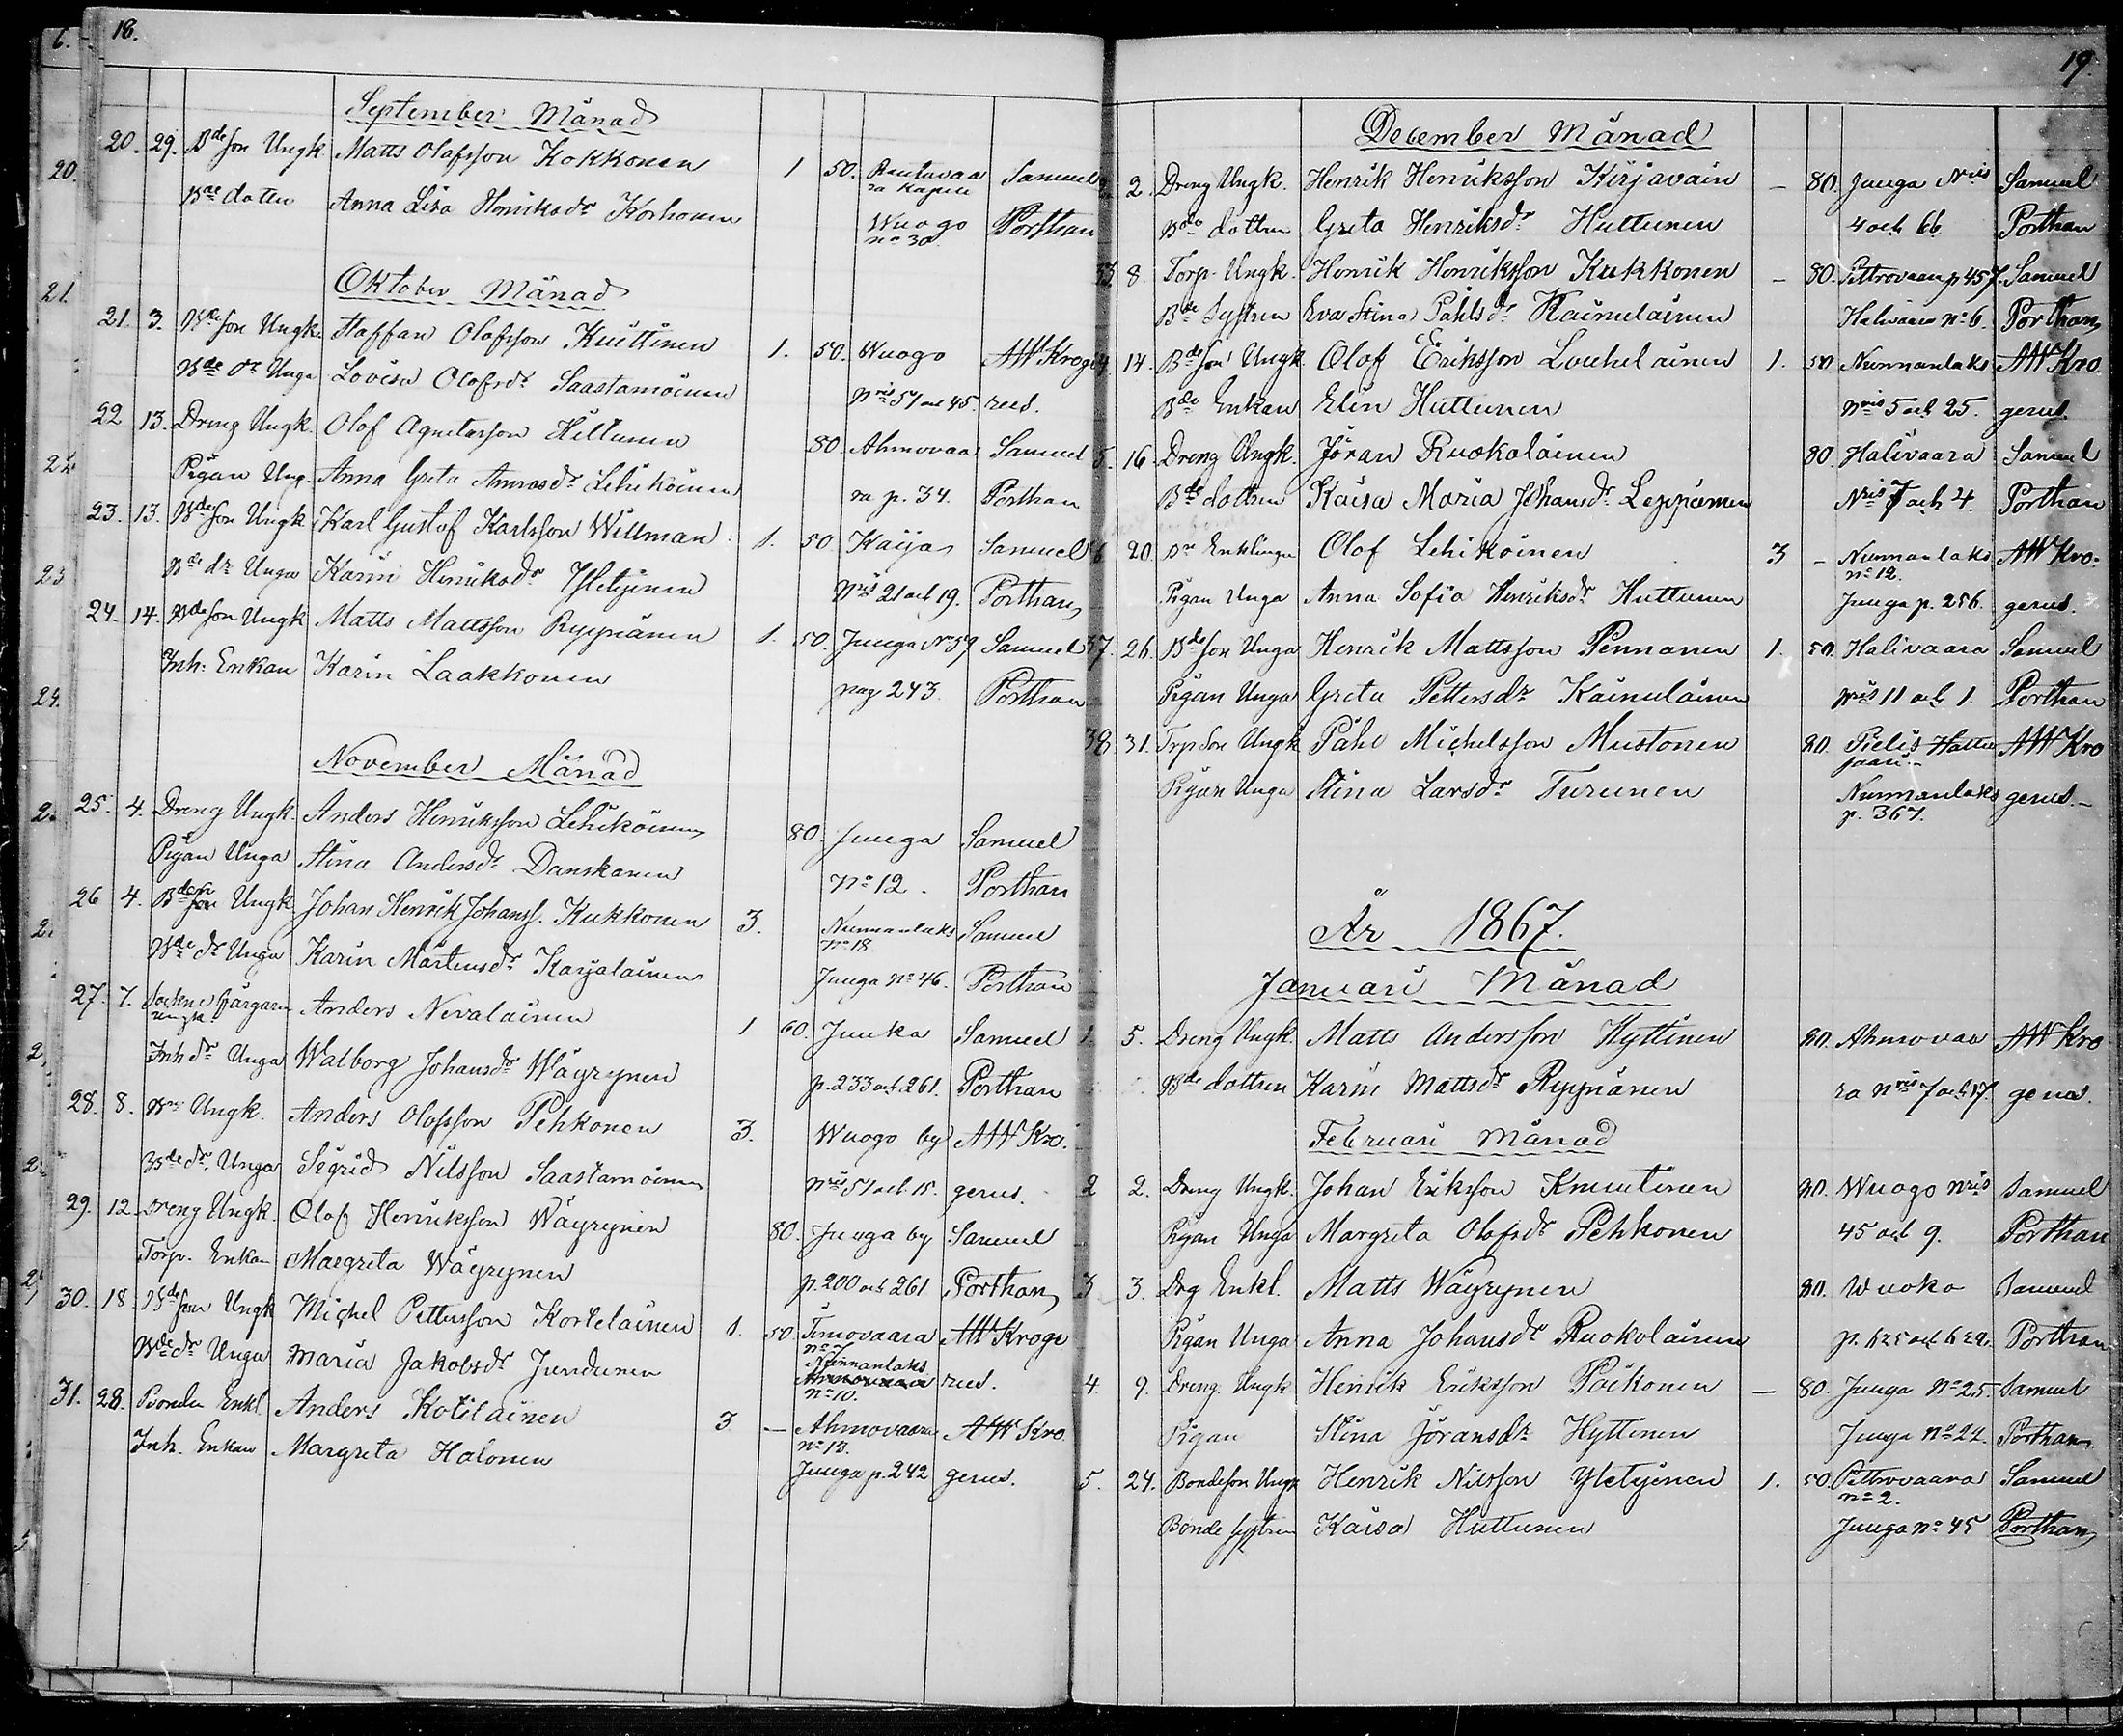 18.
September Månad
20. 29. Bde son Ungk Matts Olofsson Kokkonen 1 50. Rautavaa Samuel
ra Kapell
Bde dottn Anna Lisa Henriksdr Korhonen Wuogo Porthan
no 30
Oktober Månad
21. 3. Bde son Ungk. Staffan Olofsson Kuittinen 1. 50. Wuogo AW Kroge
Bde dr Unga Lovisa Olofsdr Saastamoinen Nris 51 och 45. rus.
22 13. Dreng Ungk. Olof Agnetasson Hiltunen 80 Ahmovaa Samuel
Pigan Ung. Anna Greta Annasdr Lehikoinen ra p. 34. Porthan
23. 13. Bde son Ungk Karl Gustaf Karlsson Willman 1. 50 Kaija Samuel
Bde dr Unga Karin Henriksdr Yletyinen Nris 21 och 19. Porthan
24. 14. Bde son Ungk Matts Mattsson Ryynänen 1. 50. Juuga No 59 Samuel
Inh: Enkan Karin Laakkonen pag 243. Porthan
November Månad
25. 4. Dreng Ungk. Anders Henriksson Lehikoinen 80. Juuga Samuel
Pigan Unga Stina Andersdr Danskanen No 12. Porthan
26 4. Bde son Ungk Johan Henrik Johanss. Kukkonen 3. Nunnanlaks Samuel
no 18.
Bde dr Unga Karin Mårtensdr Karjalainen Juuga no 46. Porthan
27. 7. Socknefärgaren Anders Nevalainen 1 60. Juuka Samuel
ungk.
Inh dr Unga Walborg Johansdr Wäyrynen p. 233 och 261. Porthan
28. 8. Bde Ungk. Anders Olofsson Pehkonen 3. Wuogo by AW Kro.
Bde dr. Unga Sigrid Nilsson Saastamoinen Nris 51 och 15. gerus.
29. 12. Dreng Ungk. Olof Henriksson Wäyrynen 80. Juuga by Samuel
Torp. Enkan Margreta Wäyrynen p. 200 och 261 Porthan
30. 18 Bde son Ungk Michel Pettersson Kortelainen 1. 50. Timovaara AW Kroge
no 7
Bde dr Unga Maria Jakobsdr Jundunen Nunnanlaks rus.
no 10.
31. 28. Bonden Enkl. Anders Kotilainen 3. — Ahmovaara AW Kro
no 13.
Inh. Enkan Margreta Halonen Juuga p. 242 gerus.
19.
December Månad
2. Dreng Ungk. Henrik Henriksson Kirjavain — 80. Juuga Nris Samuel
Bde dottren Greta Henriksdr Huttunen 4 och 66 Porthan
33 8. Torp. Ungk. Henrik Henriksson Kukkonen — 80. Pettrovaara p 457. Samuel
Bde Systren Eva Stina Påhlsdr Kainulainen Halivaara no 6. Porthan
4 14. Bde son Ungk Olof Eriksson Louhelainen 1. 50 Nunnanlaks AW Kro
Bde Enkan Elin Huttunen nris 5 och 25. gerus.
5. 16. Dreng Ungk. Jöran Ruokolainen 80. Halivaara Samuel
Bde dottren Kaisa Maria Johansdr Leppänen Nris 7 och 4. Porthan
6 20. Enklingen Olof Lehikoinen 3 — Nunnanlaks AW Kro-
no 12.
Pigan Unga Anna Sofia Henriksdr Huttunen Juuga p. 256. gerus.
37. 26. Bde son Unga Henrik Mattsson Pennanen 1. 50. Halivaara Samuel
Pigan Unga Greta Pettersdr Kainulainen nris 11 och 1. Porthan
38. 31. Trp son Ungk Påhl Michelsson Mustonen 80. Pielis Hattu AW Kro
saari.-
Pigan Unga Stina Larsdr Turunen Nunnanlaks gerus.-
p. 367.
År 1867.
Januari Månad
1. 5. Dreng Ungk. Matts Andersson Hyttinen 80. Ahmovaa AW Kro
Bde dottren Karin Mattsdr Ryynänen ra nris 7 och 17. gerus.
Februari Månad
2 2. Dreng Ungk. Johan Eriksson Knuutinen 80. Wuogo nris Samuel
Pigan Unga Margreta Olofsdr Pehkonen 45 och 9. Porthan
3 3. Drg Enkl. Matts Wäyrynen 80. Wuoko Samuel
Pigan Unga Anna Johansdr Ruokolainen p. 625 och 622. Porthan
4. 9. Dreng Ungk Henrik Eriksson Poikonen — 80. Juuga no 25. Samuel
Pigan Stina Jöransdr Hyttinen Juuga no 22. Porthan
5. 24. Bondeson Ungk Henrik Nilsson Yletyinen 1. 50. Pettrovaara Samuel
no 2.
Bonde systren Kaisa Huttunen Juuga no 45 Porthan